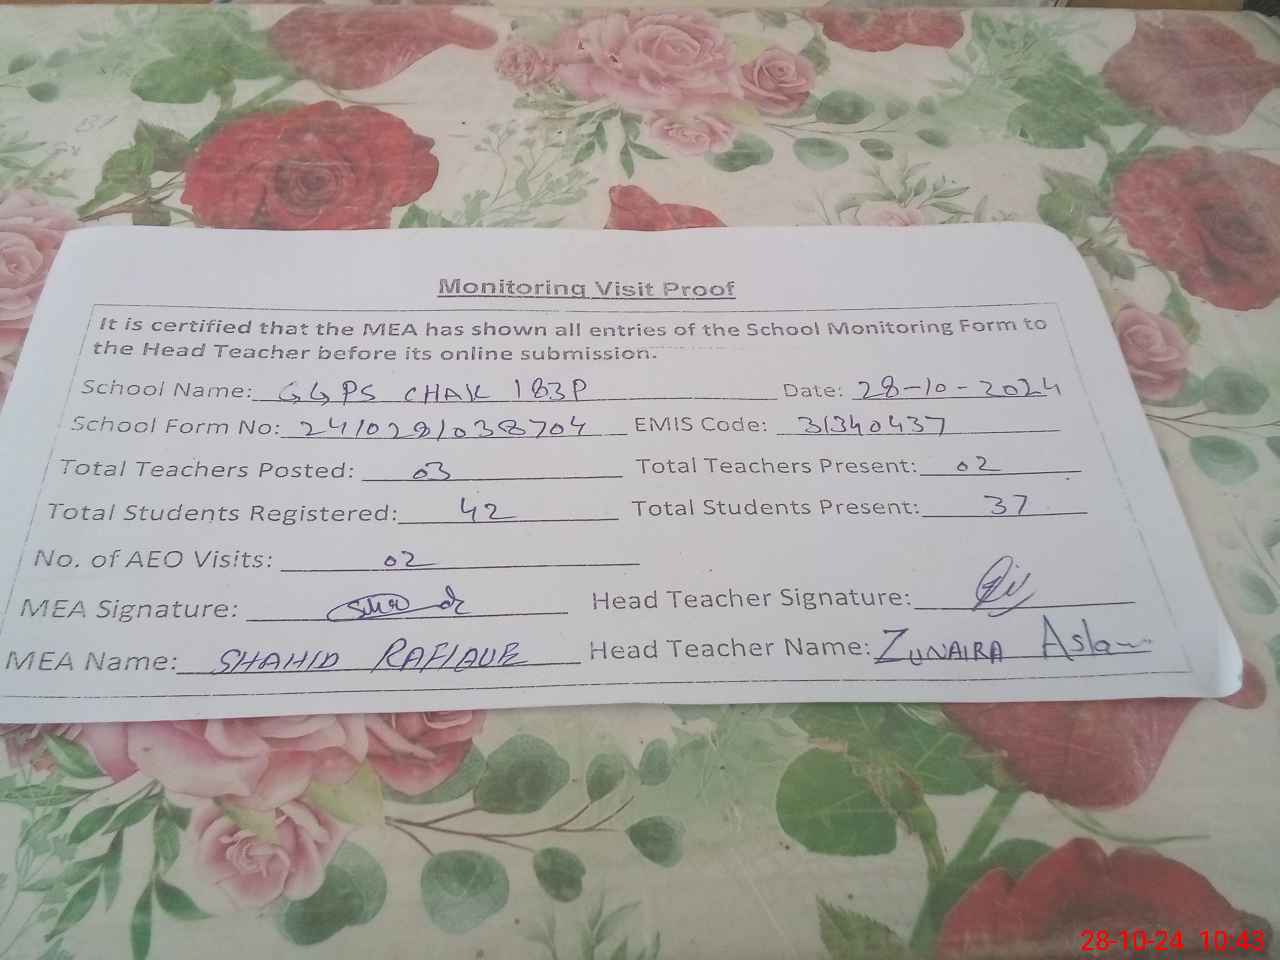 Monitoring Visit Proof
It is certified that the MEA has shown all entries of the School Monitoring Form to
the Head Teacher before its online submission.
School Name: GGPS CHAK 183P Date: 28-10-2024
School Form No: 2410281038704 EMIS Code: 31340437
Total Teachers Posted: 03 Total Teachers Present: 02
Total Students Registered: 42 Total Students Present: 37
No. of AEO Visits: 02
MEA Signature: Head Teacher Signature:
MEA Name: SHAHID RAFIQUE Head Teacher Name: ZUNAIRA Aslam
28-10-24 10:43